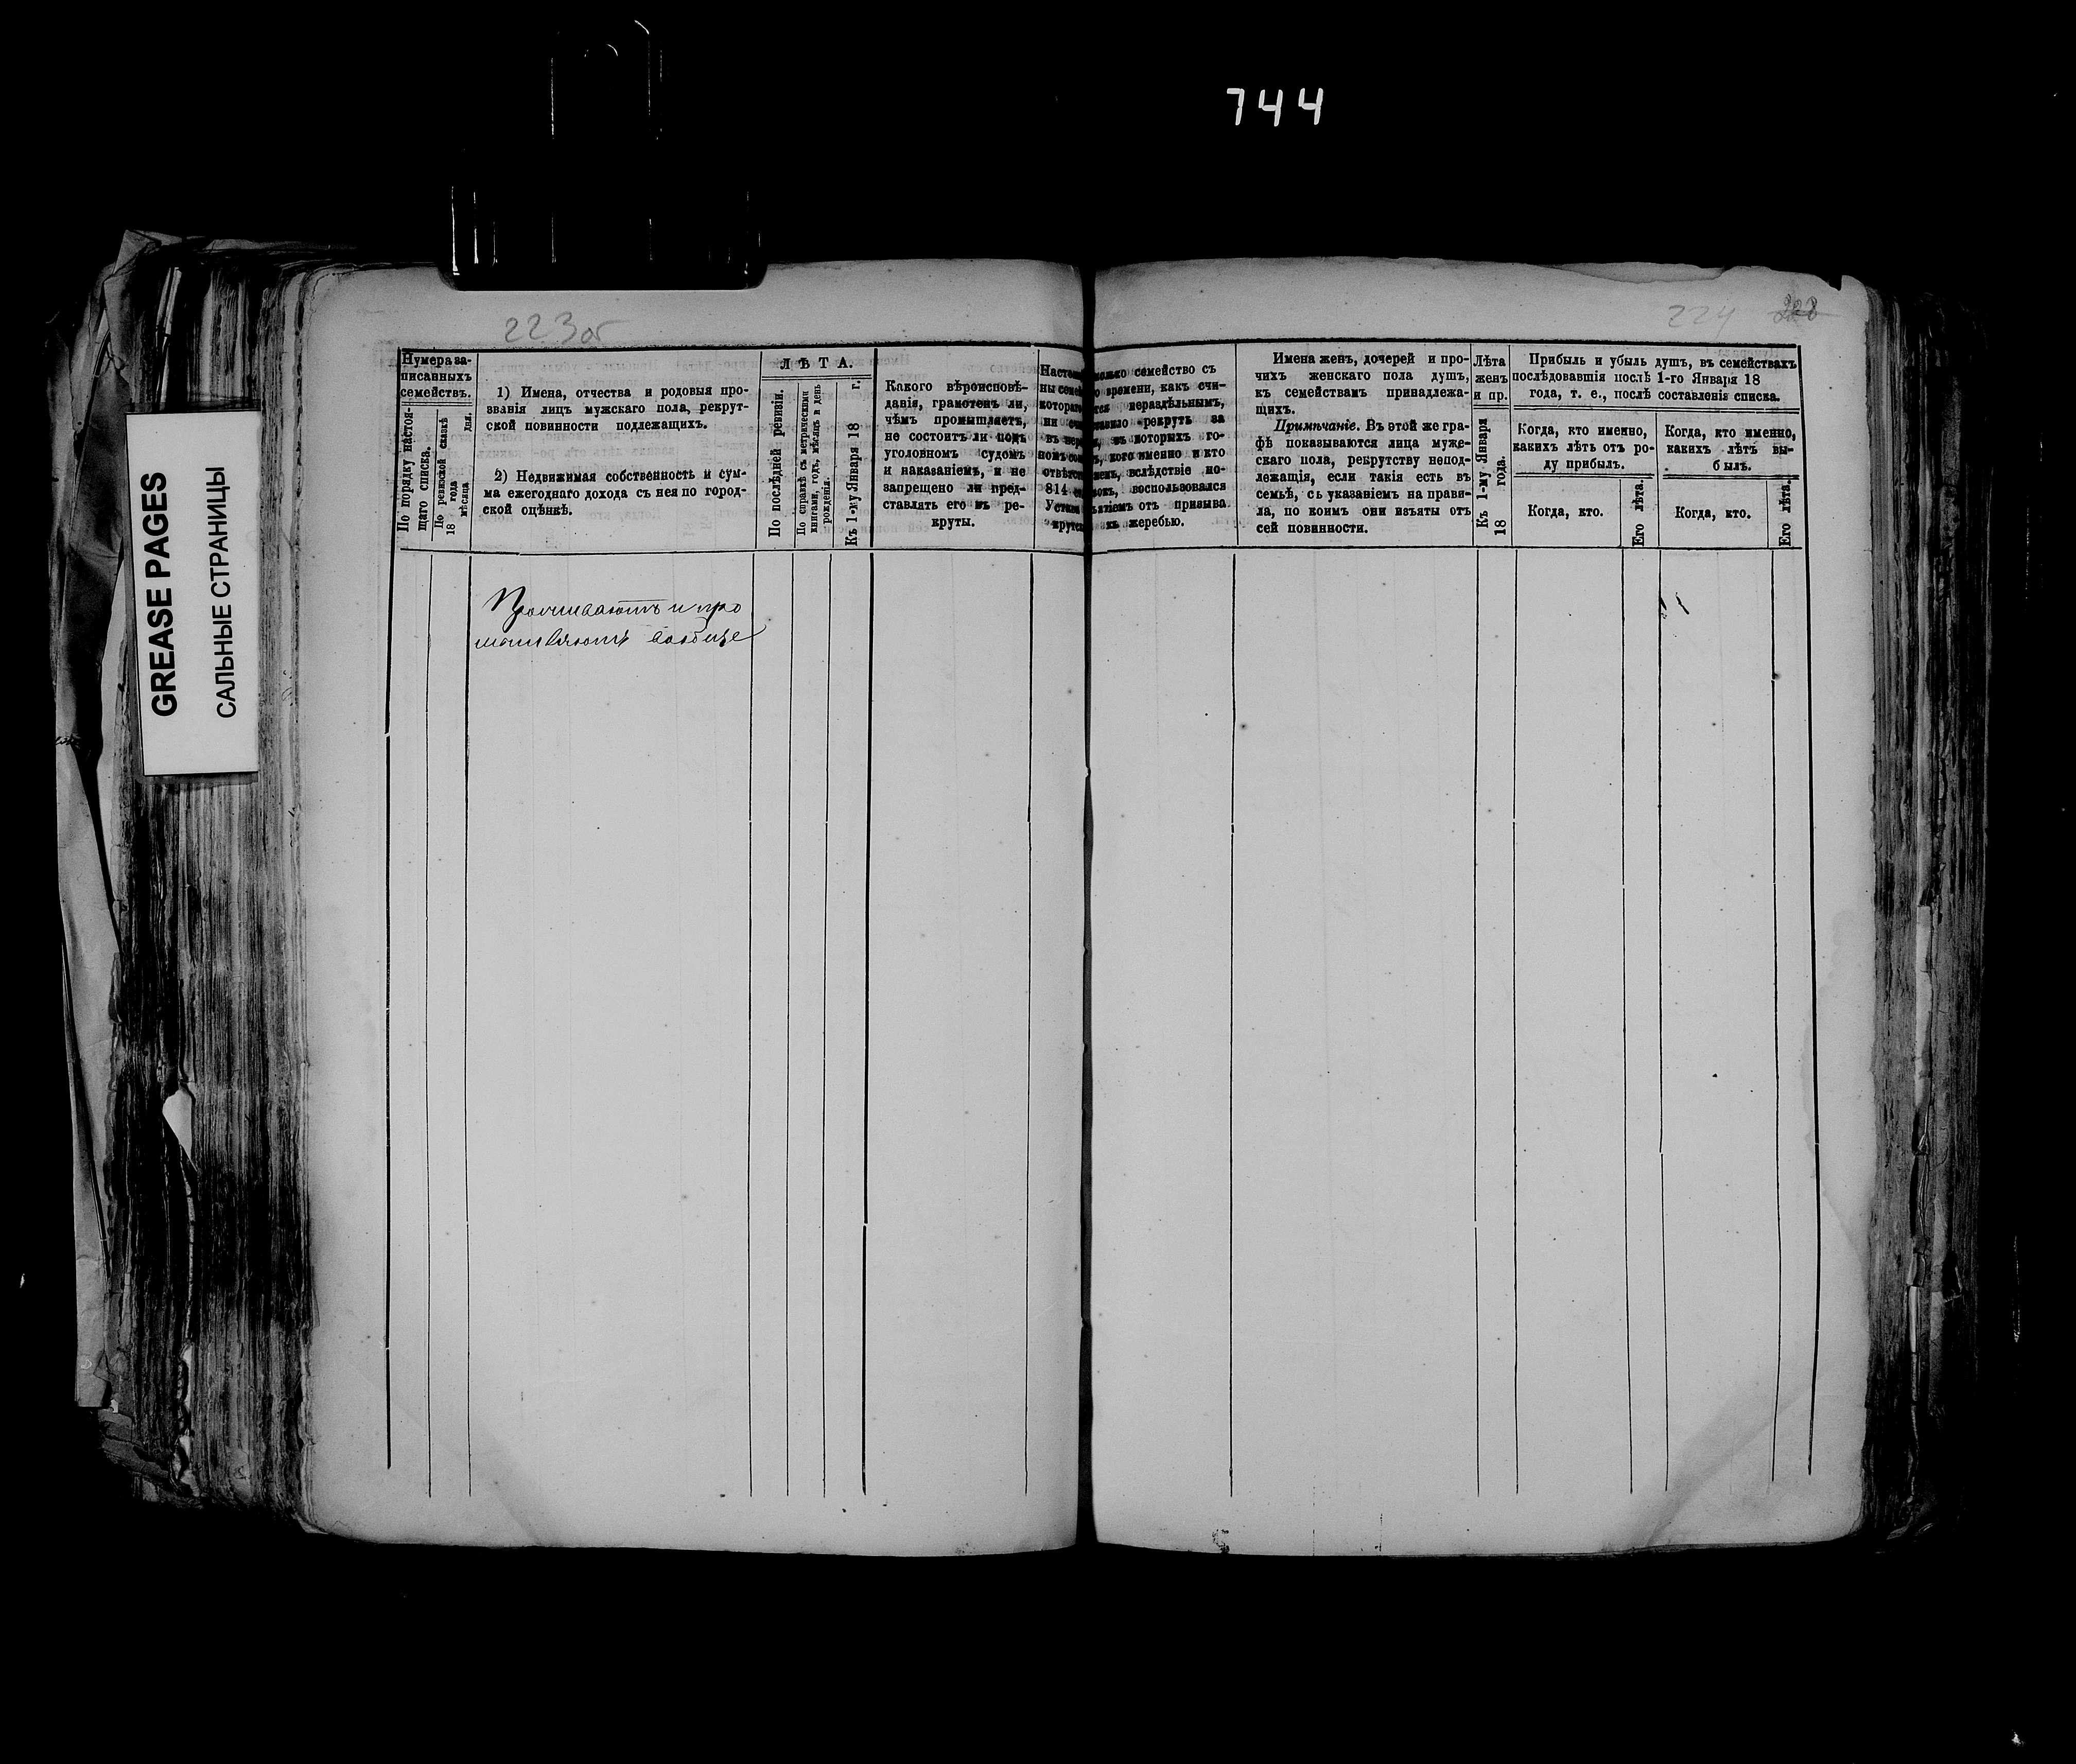 744
GREASE PAGES
САЛЬНЫЕ СТРАНИЦЫ
223об
224
Нумера за-
писанныхъ
семействъ.
По порядку настоя-
щаго списка.
По ревизской сказкѣ
18 года
мѣсяца дня.
1) Имена, отчества и родовыя про-
званія лицъ мужскаго пола, рекрут-
ской повинности подлежащихъ.
2) Недвижимая собственность и сум-
ма ежегоднаго дохода съ нея по город-
ской оцѣнкѣ.
ЛѢТА.
По послѣдней ревизіи.
По справкѣ съ метрическими
книгами, годъ, мѣсяцъ и день
рожденія.
Къ 1-му Января 18 г.
Какого вѣроисповѣ-
данія, грамотенъ ли,
чѣмъ промышляетъ,
не состоитъ ли подъ
уголовномъ судомъ
и наказаніемъ, и не
запрещено ли пред-
ставлять его въ ре-
круты.
семейство съ
времени, какъ счи-
нераздѣльнымъ,
рекрутъ за
въ которыхъ го-
кого именно и кто
вслѣдствіе
814 воспользовался
отъ призыва
жеребью.
Имена женъ, дочерей и про-
чихъ женскаго пола душъ,
къ семействамъ принадлежа-
щихъ.
Примѣчаніе. Въ этой же гра-
фѣ показываются лица муже-
скаго пола, рекрутству непод-
лежащія, если такія есть въ
семьѣ, съ указаніемъ на прави-
ла, по коимъ они изъяты отъ
сей повинности.
Лѣта
женъ
и пр.
Къ 1-му Января
18 года.
Прибыль и убыль душъ, въ семействахъ
послѣдовавшія послѣ 1-го Января 18
года, т. е., послѣ составленія списка.
Когда, кто именно,
какихъ лѣтъ отъ ро-
ду прибылъ.
Когда, кто.
Его лѣта.
Когда, кто именно,
какихъ лѣтъ вы-
былъ.
Когда, кто.
Его лѣта.
и про